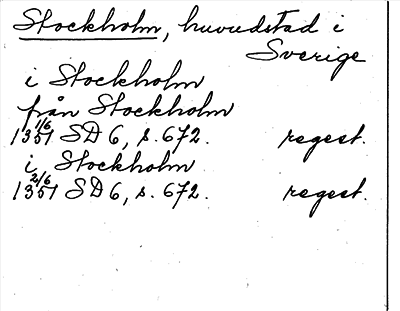 Stockholm, huvudstad i
Sverige
i Stockholm
från Stockholm
1351 1/6 SD 6, s. 672. regest.
i Stockholm
1351 2/6 SD 6, s. 672. regest.